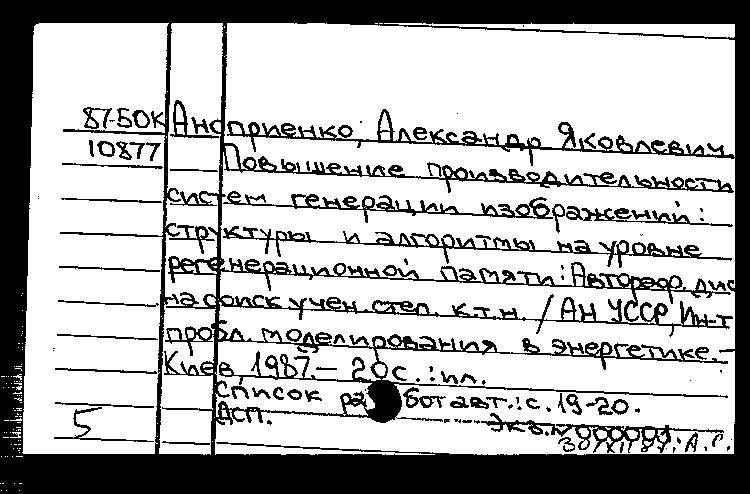 87-50К Аноприенко, Александр Яковлевич.
10877 Повышение производительности
систем генерации изображений:
структуры и алгоритмы на уровне
регенерационной памяти: Автореф. дис
на соиск учен. степ. к.т.н. / АН УССР, Ин-т
пробл. моделирования в энергетике.-
Киев, 1987.- 20с. : ил.
Список работ авт.: с. 19-20.
5 ДСП. Экз. № 000001.
30/XI/87. А.Г.